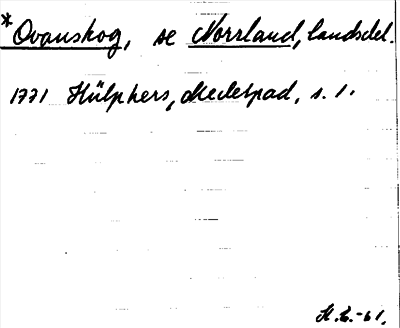 *Ovanskog, se Norrland, landsdel.
1771 Hülphers, Medelpad, s. 1.
H.L.-61.